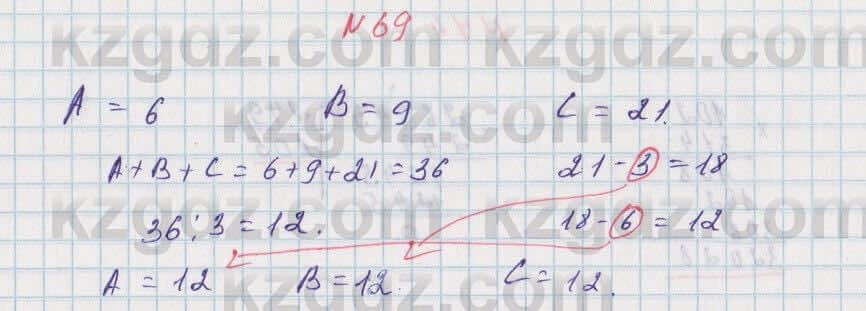 N69
A = 6 B = 9 C = 21.
A + B + C = 6 + 9 + 21 = 36 21 - 3 = 18
36 : 3 = 12. 18 - 6 = 12
A = 12 B = 12. C = 12.
kzgdz.com kzgdz.com
kzgdz.com kzgdz.com
kzgdz.com kzgdz.com